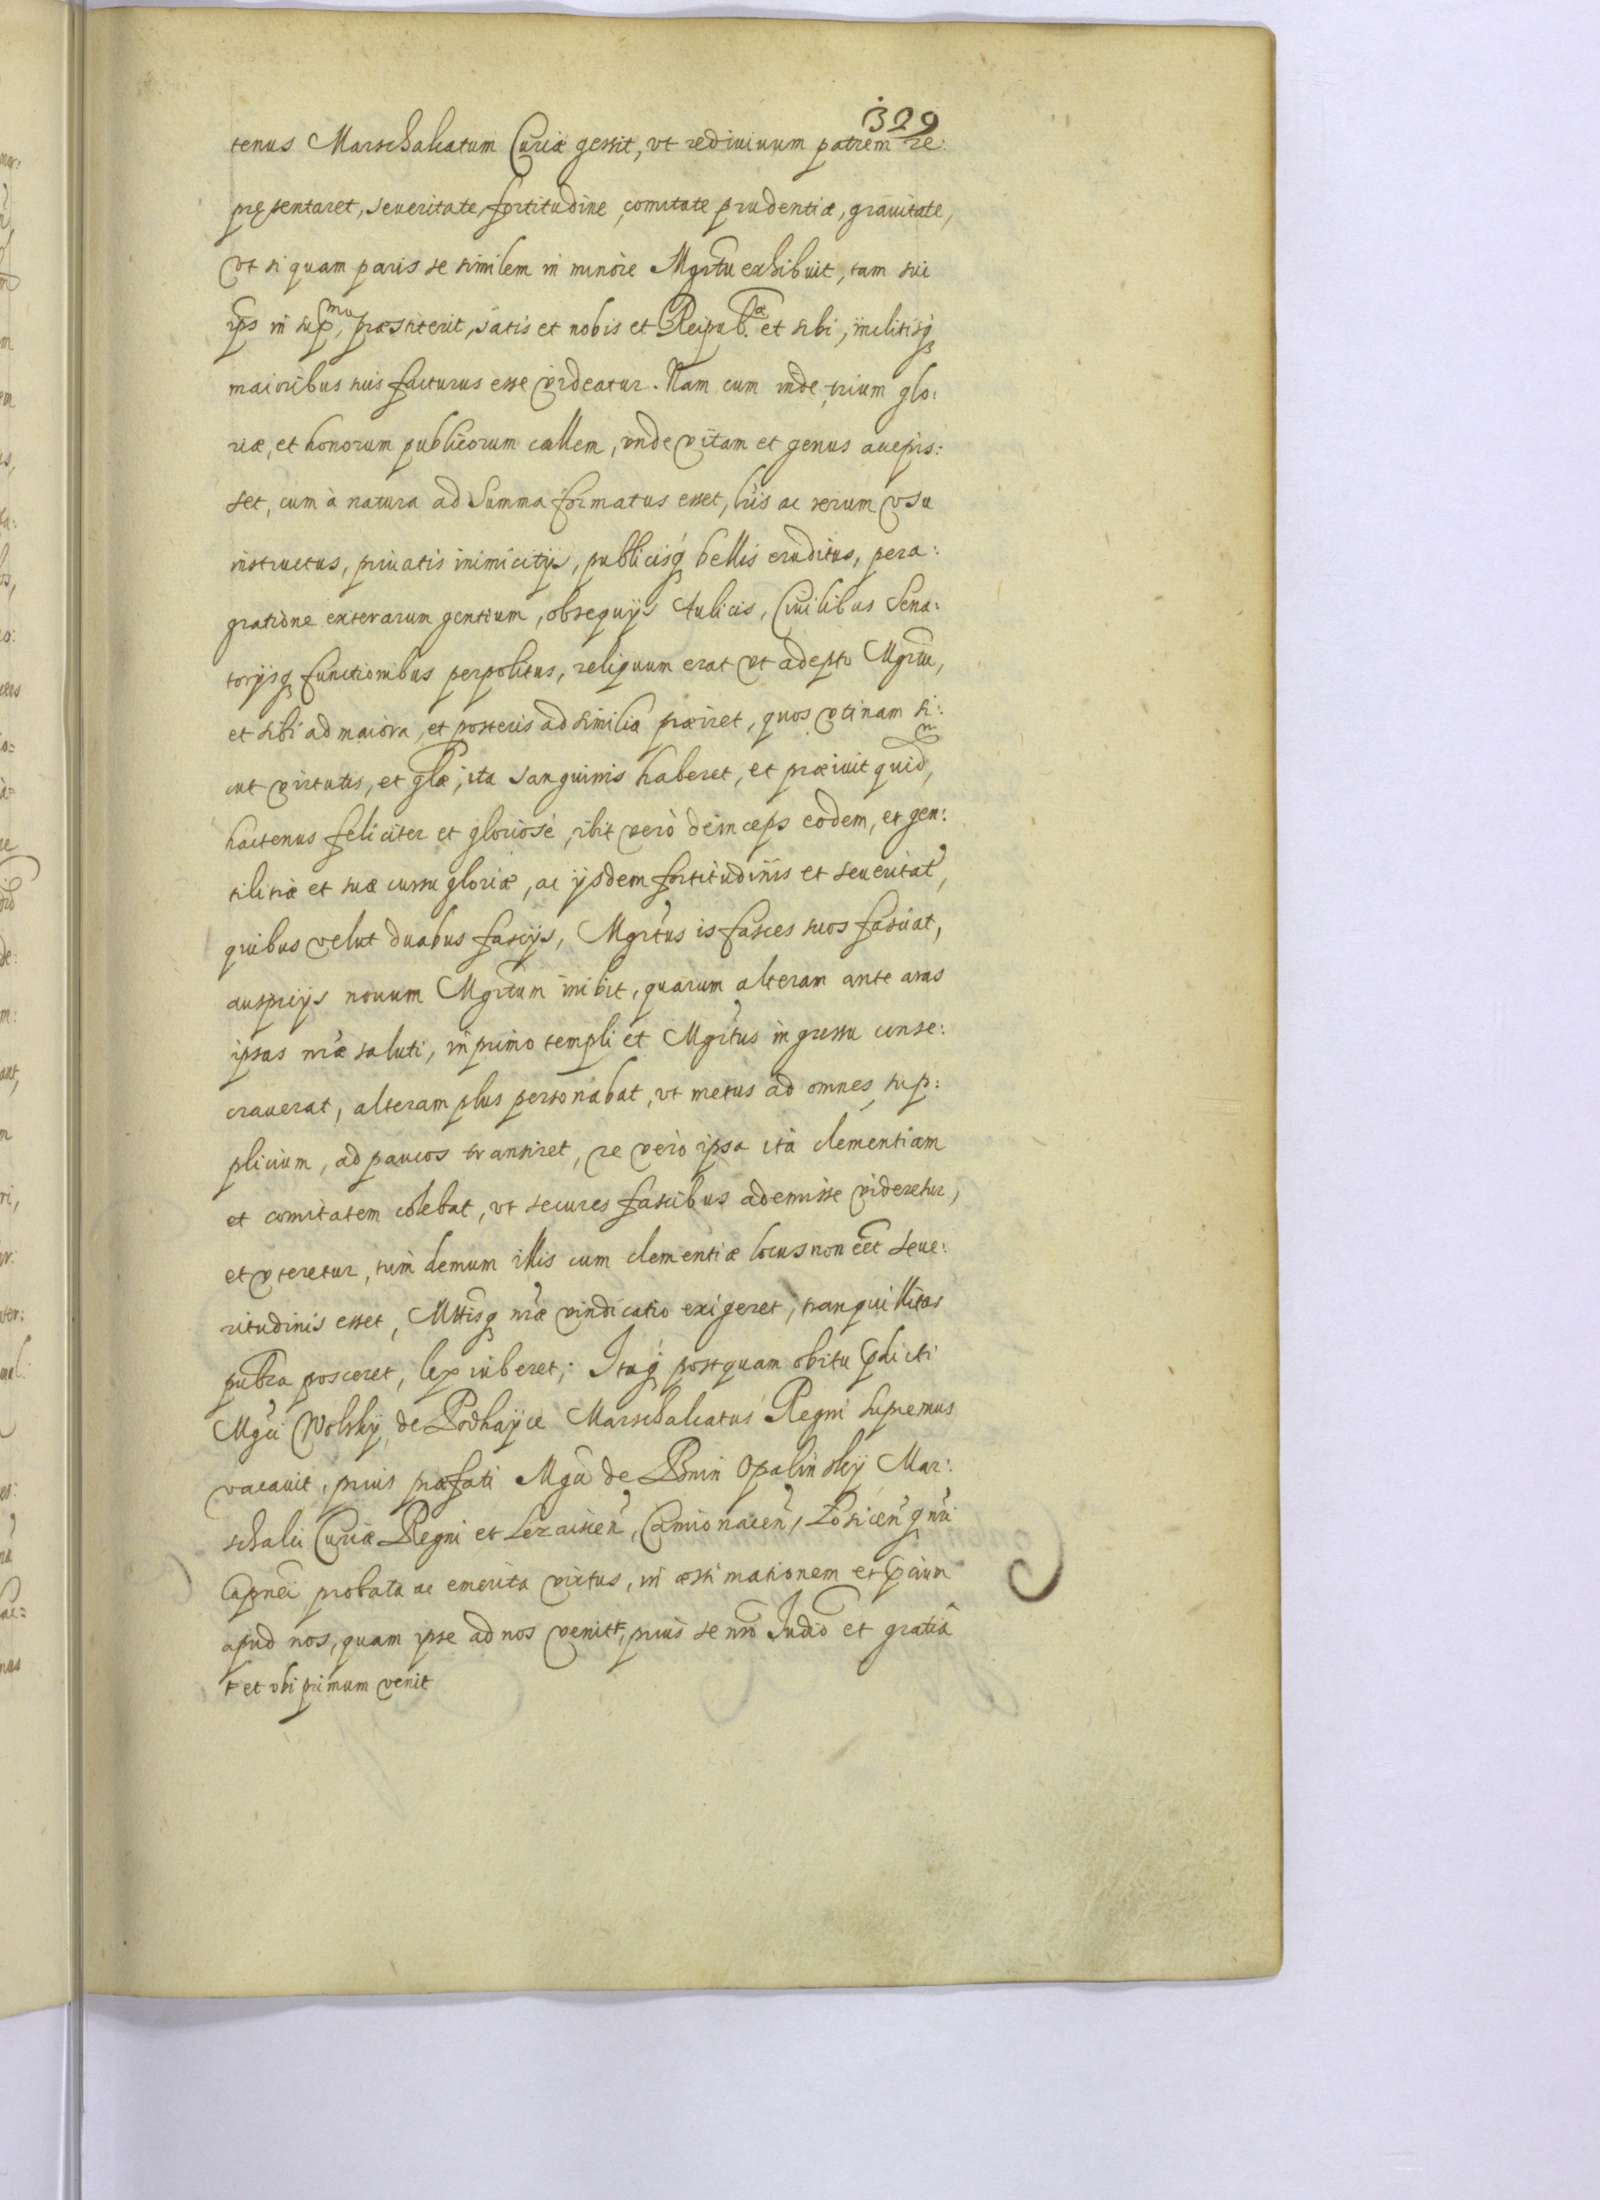 329
tenus Marschalcatum Curiæ gessit, vt rediuiuum patrem re:
pręsentaret, seueritate, fortitudine, comitate prudentia, grauitate,
vt si quam paris se similem in minore Mgrtu exhibuit, tam sui
ips in supmo, præstiterit, satis et nobis et Reipub.æ et sibi, inclitisq
maioribus suis facturus esse videatur. Nam cum inde, trium glo:
riæ, et honorum publicorum callem, vnde vitam et genus accepis:
set, cum à natura ad Summa formatus esset, lris ac rerum vsu
instructus, priuatis inimicitijs, publicisq bellis eruditus, pera:
gratione exterarum gentium, obsequijs Aulicis, Ciuilibus Sena:
torijsq functionibus perpolitus, reliquum erat vt adepto Mgrtu,
et sibi ad maiora, et posteris ad similia præiret, quos vtinam si:
cut virtutis, et glæ, ita sanguinis haberet, et præiuit quidm,
hactenus feliciter et gloriosè, ibit verò deinceps eodem, et gen:
tilitiæ et suæ cursu gloriæ, ac ijsdem fortitudinis et seueritat,
quibus velut duabus fascijs, Mgrtus is fasces suos fasciat,
auspicijs nouum Mgrtum inibit, quarum alteram ante aras
ipsas nræ saluti, in primo templi et Mgrtus ingressu conse:
crauerat, alteram plus personabat, vt metus ad omnes, sup:
plicium, ad paucos transiret, re verò ipsa ita clementiam
et comitatem colebat, vt secures fascibus ademisse videretur,
et vteretur, tum demum illis cum clementiæ locus non eēt seue:
ritudinis esset, Mttisq nræ vindicatio exigeret, tranquillitas
publca posceret, lex iuberet; Itaq postquam obitu pdicti
Mgci Wolsky, de Podhayce Marschalcatus Regni supremus
vacauit, prius præfati Mgci de Bnin Opalinsky Mar:
schalci Curiæ Regni et Lezaiscen, Camionacen, Łosicen q nri
Capnei probata ac emerita virtus, in æstimationem et pcium
apud nos, quam ipse ad nos venit +, prius se nro Iudio et gratiâ
+ et vbi primum venit